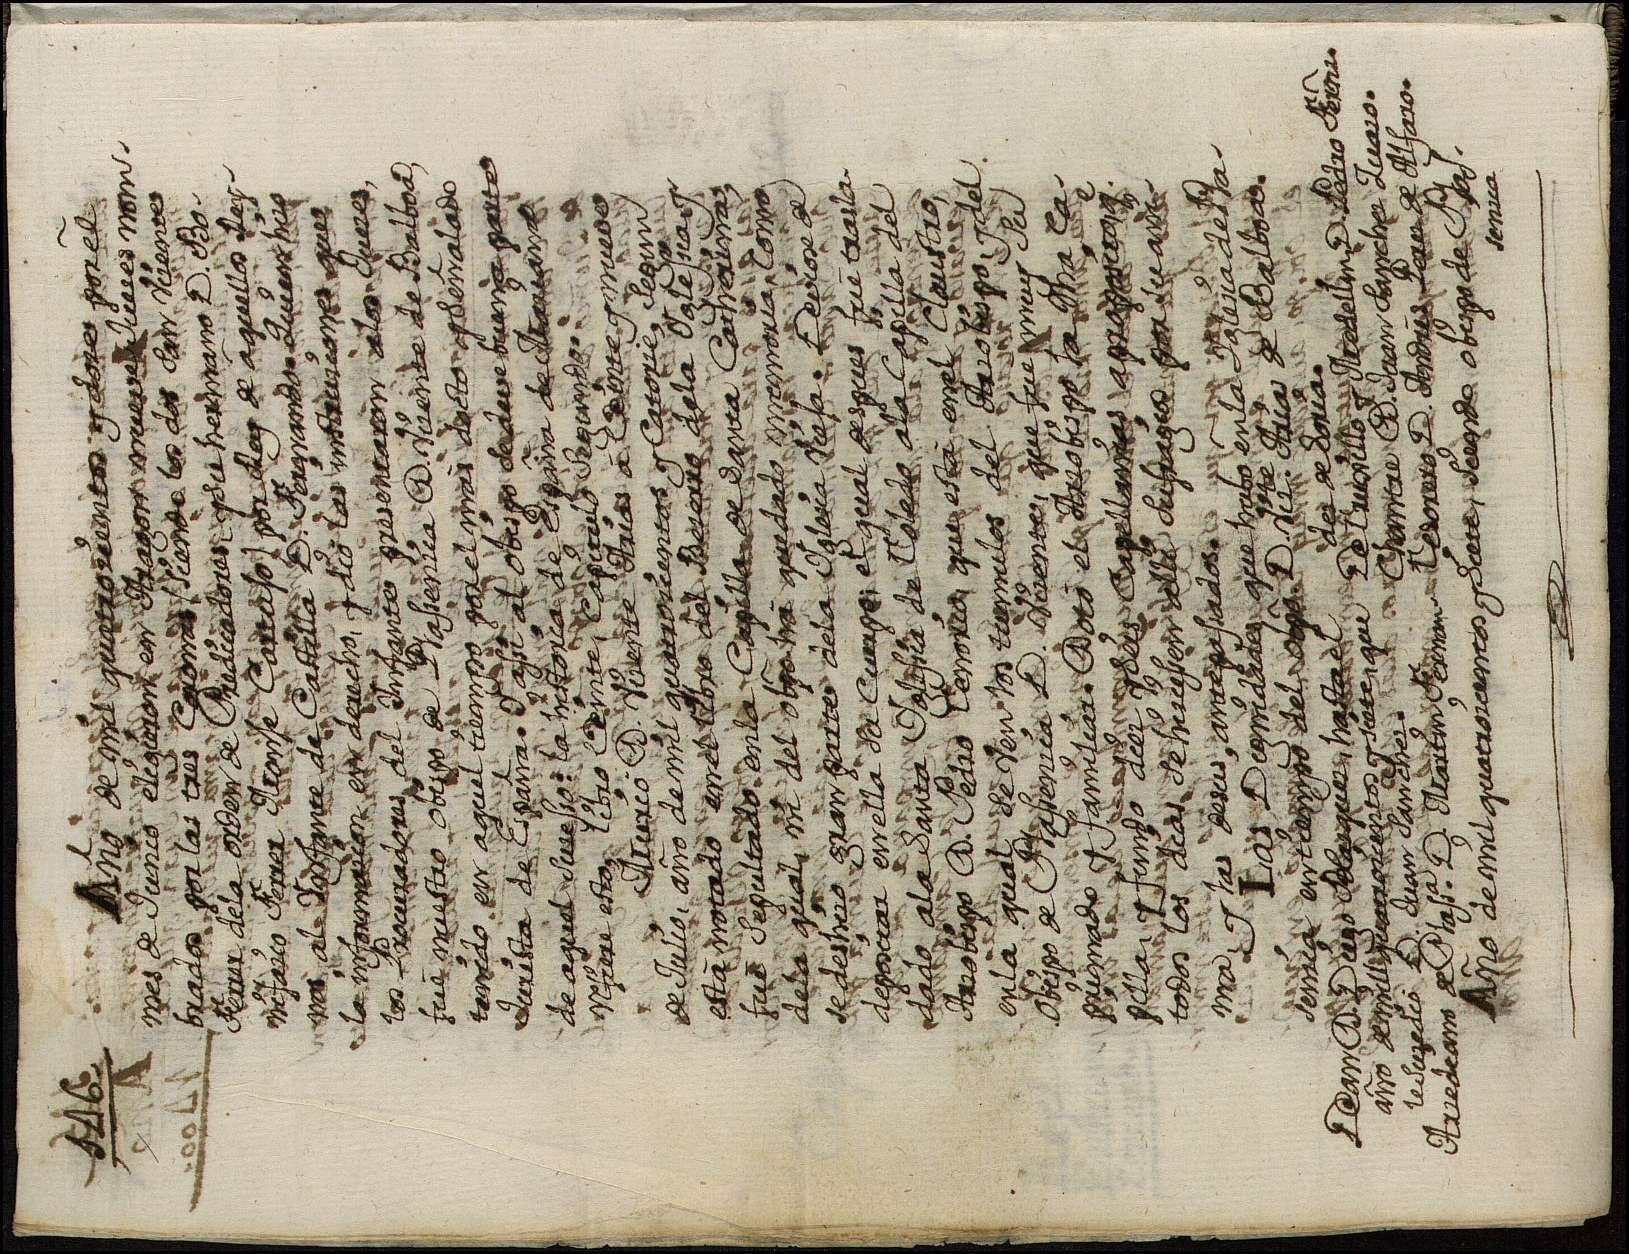 116
A
1400.
Año de mil quatrocientos y doze por el
mes de Junio eligieron en Aragon nueve Jueces nom-
brados por las tres Coronas siendo los dos San Vicente
Ferrer dela orden de Predicadores y su hermano D. Bo-
nifacio Ferrer Monje Cartujo por Rey de aquellos Rey-
nos al Infante de Castilla D. Fernando. Quien hizo
la informacion en derecho, y dio las instruciones que
los Procuradores del Infante presentaron alos Jueces,
fue nuestro obispo de Plasencia D. Vicente de Balboa,
tenido en aquel tiempo por el mas docto y señalado
Jurista de España. Y assi al obispo se deve buena parte
de aquel suceso: la historia de España de Mariana
refiere esto, Libro Veinte, Capitulo Segundo.
Murio D. Vicente Arias à Veinte y nueve
de Julio, año de mil quatrocientos y Catorze, segun
està notado en el libro del Bezerro dela Yglesia, y
fue sepultado en la Capilla de Santa Catherina,
dela qual, ni del obpo ha quedado memoria, como
se deshizo gran parte dela Yglesia Vieja. Deviose de
depositar en ella su Cuerpo, el qual despues fue trasla-
dado ala Santa Yglesia de Toledo ala Capilla del
Arzobispo D. Pedro Tenorio, que està en el Claustro,
en la qual se ven los tumulos del Arzobispo, y del
Obispo de Plasencia D. Vicente, que fue muy su
privado y familiar. Doto el Arzobispo la dha Ca-
pilla, y fundo diez y seis Capellanias
todos los dias se hiziessen sufragios por su ani-
ma, y las desus antepassados.
Las Dignidades que hubo en la Yglesia de Pla-
sencia en tiempo del obpo. D. Vic.te Arias de Balboa.
Dean D. Diego Blazquez, hasta el
año de mil quatrocientos y siete, que
le sucedio D. Juan Sanchez.
Arcedeano de Plas.a D. Martin Fernan-
dez de Soria.
De Truxillo y Medellin, D. Pedro Fern.z
Chantre D. Juan Sanchez Suaro.
Tesorero D. Andres Perez de Alfaro.
Año de mil quatrocientos y siete, siendo obispo de Pla-
sencia